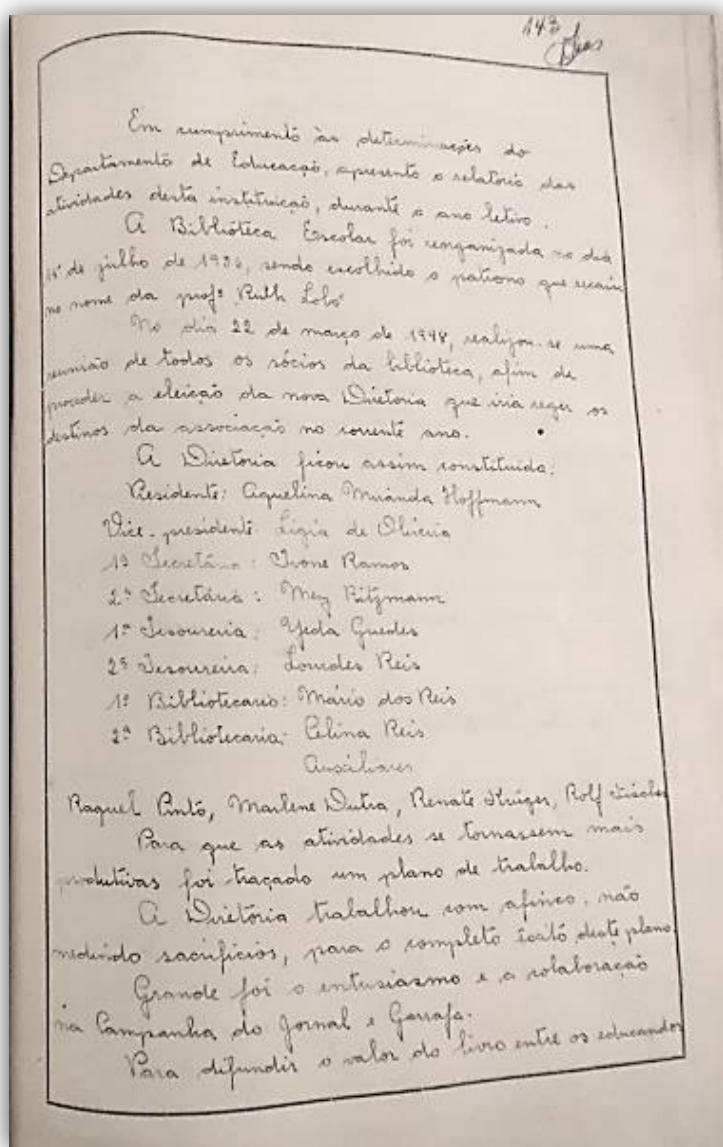 143
Em cumprimento às determinações do
Departamento de Educação, apresento o relatorio das
atividades desta instituição, durante o ano letivo.
A Bibliotéca Escolar foi reorganizada no dia
de julho de 1936, sendo escolhido o patrono que recaiu
no nome da profª Ruth Lobo
No dia 22 de março de 1948, realizou-se uma
reunião de todos os sócios da biblioteca, afim de
proceder a eleição da nova Diretoria que iria reger os
destinos da associação no corrente ano.
A Diretoria ficou assim constituida:
Presidente: Aquelina Miranda Hoffmann
Vice-presidente: Ligia de Oliveira
1ª Secretária: Ivone Ramos
2ª Secretária: Mery Ritzmann
1ª Tesoureira: Yeda Guedes
2ª Tesoureira: Lourdes Reis
1º Bibliotecario: Mário dos Reis
2ª Bibliotecaria: Celina Reis
Auxiliares
Raquel Pinto, Marlene Dutra, Renate Krüger, Rolf Fischer
Para que as atividades se tornassem mais
produtivas foi traçado um plano de trabalho.
A Diretória trabalhou com afinco, não
medindo sacrifícios, para o completo êxito deste plano.
Grande foi o entusiasmo e a colaboração
na Campanha do Jornal e Garrafa.
Para difundir o valor do livro entre os educandos